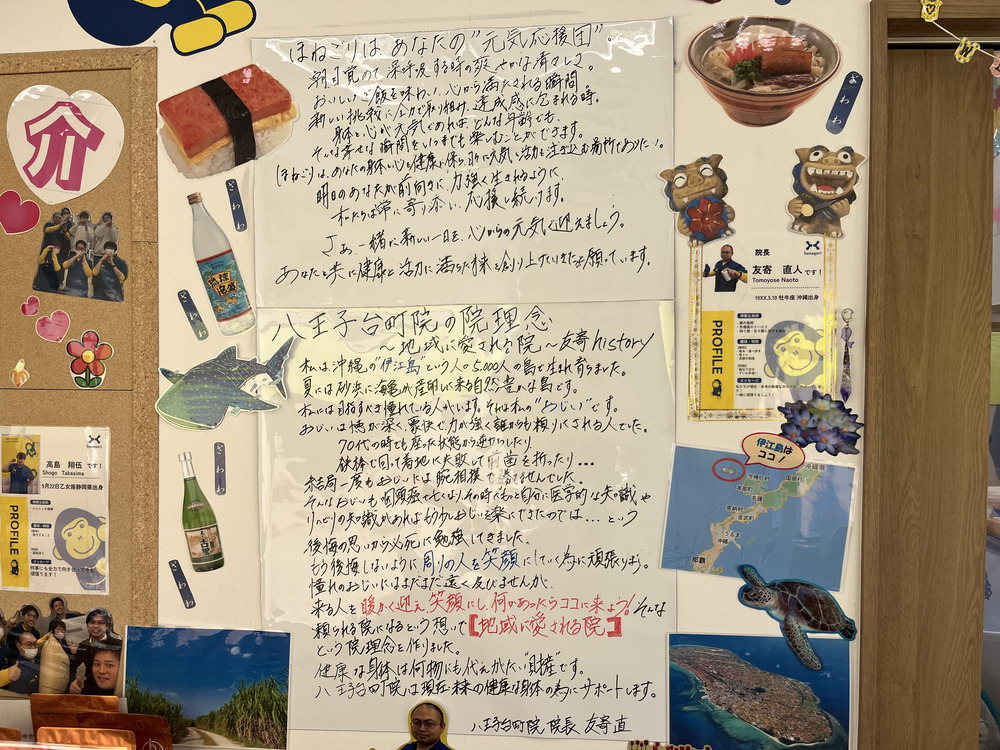 ほねごりは あなたの"元気応援団"。
朝目覚めて深呼吸する時の爽やかな清々しさ。
おいしいご飯を味わい、心から満たされる瞬間。
新しい挑戦に全力で取り組み、達成感に包まれる時。
身体と心が元気であれば、どんな年齢でも、
そんな幸せな瞬間をいつまでも楽しむことができます。
ほねごりは、あなたの身体と心を健康に保ち、日々に元気と活力を注ぎ込む場所でありたい。
明日のあなたが前向きに、力強く生きれるように、
私たちは常に寄り添い、応援し続けます。
さぁ、一緒に新しい一日を、心からの元気で迎えましょう。
あなたと共に健康と活力に満ちた未来を創り上げていきたいと願っています。
八王子台町院の院理念
〜地域に愛される院〜友寄history
私は沖縄の"伊江島"という人口5,000人の島で生まれ育ちました。
夏には砂浜に海亀が産卵に来る自然豊かな島です。
私には目指すべき憧れている人がいます。それは私の"おじい"です。
おじいは情が深く、豪快で力が強く誰からも頼りにされる人でした。
70代の時でも座った状態から逆立ちしたり
鉄棒で回って着地に失敗して前歯を折ったり...
結局一度もおじいには腕相撲で勝てませんでした。
そんなおじいも咽頭癌で亡くなり、その時もっと自分に医学的な知識や
リハビリの知識があればもう少しおじいを楽にできたのでは...という
後悔の思いから必死に勉強してきました。
もう後悔しないように周りの人を笑顔にしていく為に頑張ります。
憧れのおじいにはまだまだ遠く及びませんが、
来る人を暖かく迎え、笑顔にし、何かあったらココに来よう!そんな
頼られる院になるという想いで【地域に愛される院】
という院理念を作りました。
健康な身体は何物にも代えがたい"財産"です。
八王子台町院は現在・未来の健康な身体の為にサポートします。
八王子台町院 院長 友寄 直
介
ざわわ
ざわわ
ざわわ
ざわわ
ざわわ
琉球泡盛
院長
友寄 直人です!
Tomoyose Naoto
honegori
19XX.5.10 牡牛座 沖縄出身
PROFILE
メッセージ
高島 翔伍です!
Shogo Takasima
9月22日乙女座静岡県出身
PROFILE
メッセージ
伊江島は
ココ!
沖縄県
国頭村
今帰仁村
本部町
名護
恩納村
金武町
うるま
沖縄
那覇